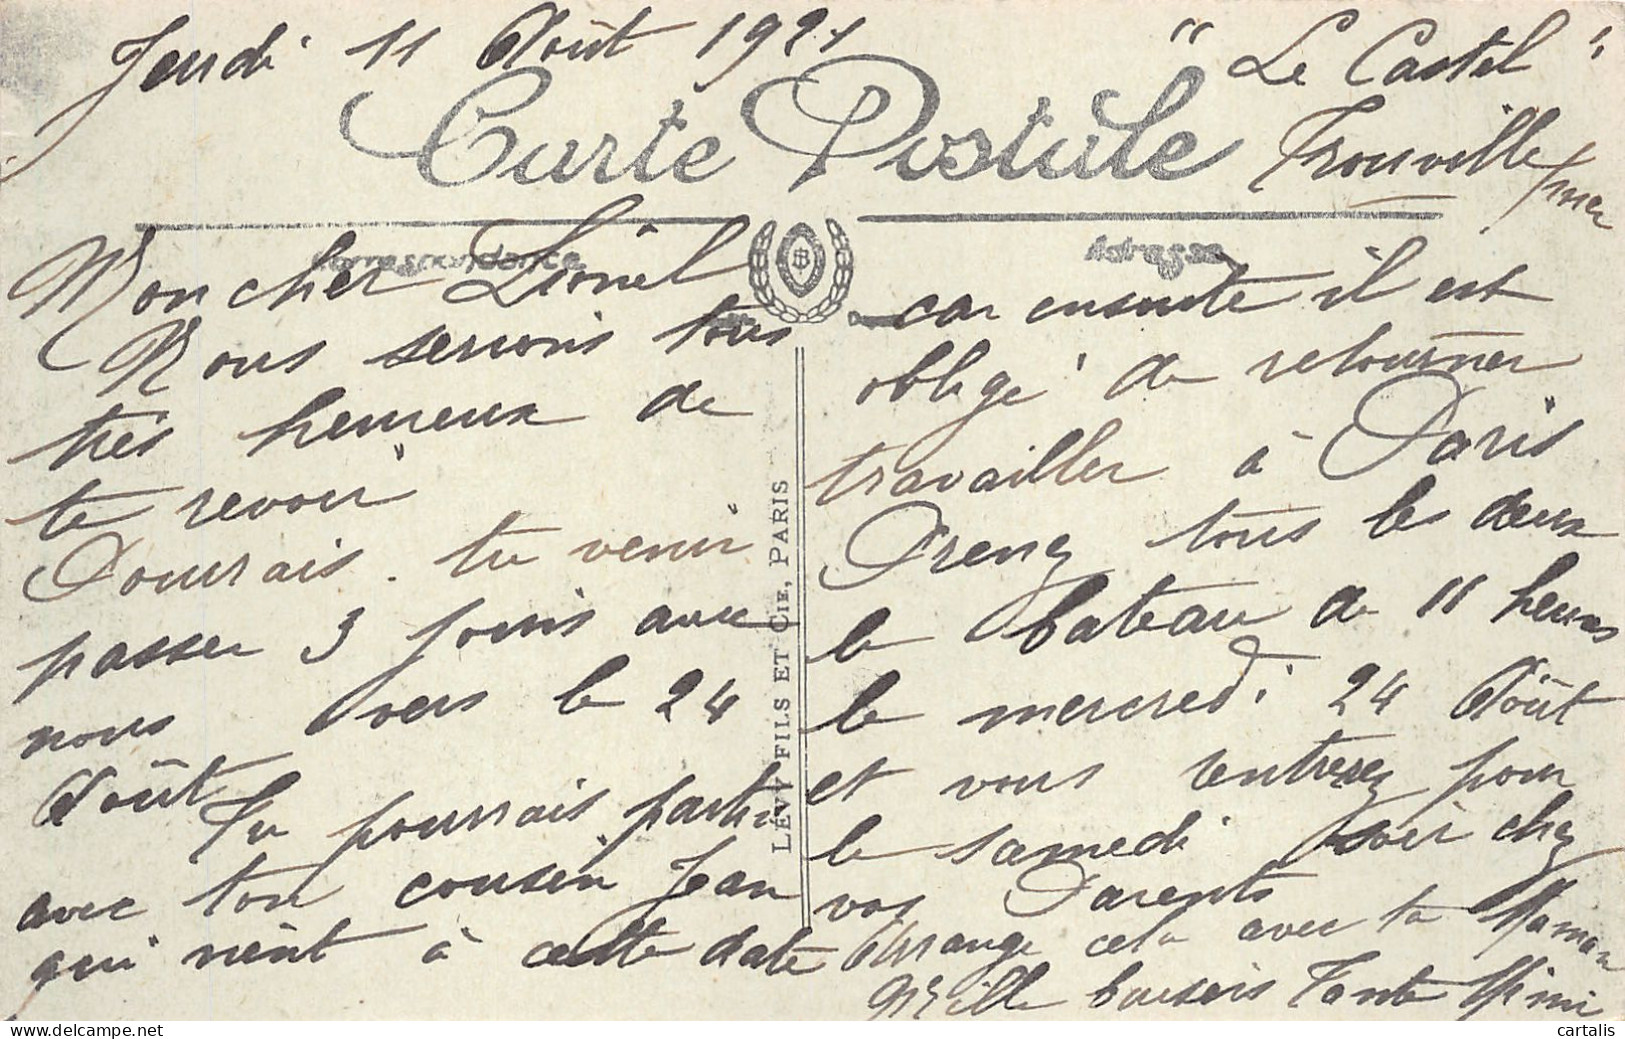 Jeudi 11 Août 1921
" Le Castel "
Trouville
s/mer
Carte Postale
Correspondance
Adresse
Mon cher Lionel
Nous serions tous
très heureux de
te revoir
Pourrais-tu venir
passer 3 jours avec
nous vers le 24
Août
Tu pourrais partir
avec ton cousin Jean
qui vient à cette date
LÉVY FILS ET CIE, PARIS
car ensuite il est
obligé de retourner
travailler à Paris
Prenez tous les deux
le bateau de 11 heures
le mercredi 24 Août
et vous rentrerez pour
le samedi soir chez
vos Parents
Arrange cela avec ta Maman
Mille baisers Tante Mimi
cartalis